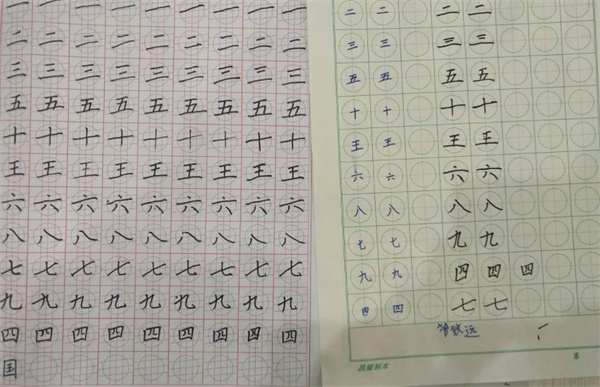 一 一 一 一 一 一 一 一 一
二 二 二 二 二 二 二 二 二
三 三 三 三 三 三 三 三 三
五 五 五 五 五 五 五 五 五
十 十 十 十 十 十 十 十 十
王 王 王 王 王 王 王 王 王
六 六 六 六 六 六 六 六 六
八 八 八 八 八 八 八 八 八
七 七 七 七 七 七 七 七 七
九 九 九 九 九 九 九 九 九
四 四 四 四 四 四 四 四 四
国
二 二 二 二
三 三 三 三
五 五 五 五
十 十 十 十
王 王 王 王
六 六 六 六
八 八 八 八
七 七 九 九
九 九 四 四 四
四 四 七 七
曾致远